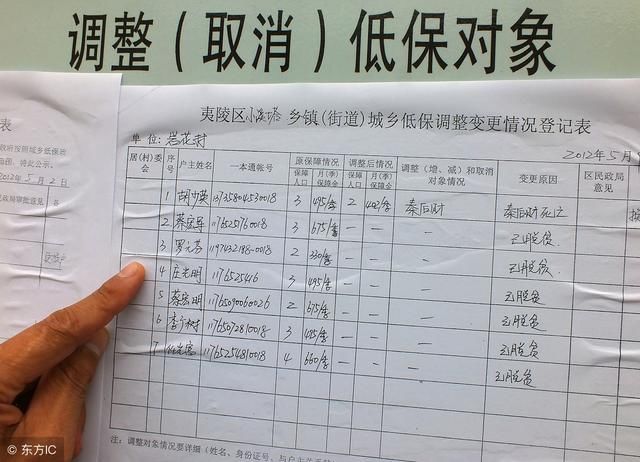 调整（取消）低保对象
表
政府按照城乡低保政
2012年5月2日
民政局审批意见
夷陵区小溪塔乡镇(街道)城乡低保调整变更情况登记表
单位:岩花村
2012年5月
居(村)委会 序号 户主姓名 一本通帐号 原保障情况 调整后情况 调整（增、减）和取消对象情况 变更原因 区民政局意见
保障人口 月(季)保障金 保障人口 月(季)保障金
1 3 495/季 2 402/季 秦后财 秦后财死亡
2 蔡宏导 11765257618 3 675/季 — — — 已脱贫
3 罗元芬 1197432188-0018 2 330/季 — — — 已脱贫
4 庄光明 1176525416 3 495/季 — — — 已脱贫
5 蔡宏明 11765090060026 2 675/季 — — — 已脱贫
6 11765072810018 3 485/季 — — — 已脱贫
7 11765254810018 4 660/季 — — — 已脱贫
注：调整对象情况要详细（姓名、身份证号、与户主关系
© 东方IC